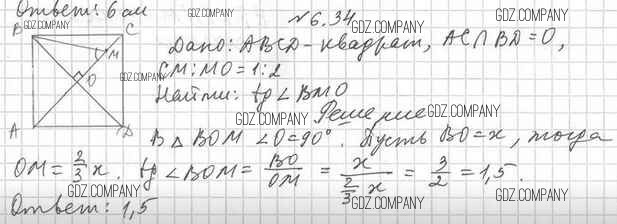 Ответ: 6 см
№6.34
B C
M
O
A D
Дано: ABCD - квадрат, AC∩BD=O,
CM:MO=1:2
Найти: tg∠BMO
Решение
В △ BOM ∠O=90°. Пусть BO=x, тогда
OM = 2/3 x. tg∠BOM = BO/OM = x/(2/3 x) = 3/2 = 1,5.
Ответ: 1,5
GDZ.COMPANY
GDZ.COMPANY
GDZ.COMPANY
GDZ.COMPANY
GDZ.COMPANY
GDZ.COMPANY
GDZ.COMPANY
GDZ.COMPANY
GDZ.COMPANY
GDZ.COMPANY
GDZ.COMPANY
GDZ.COMPANY